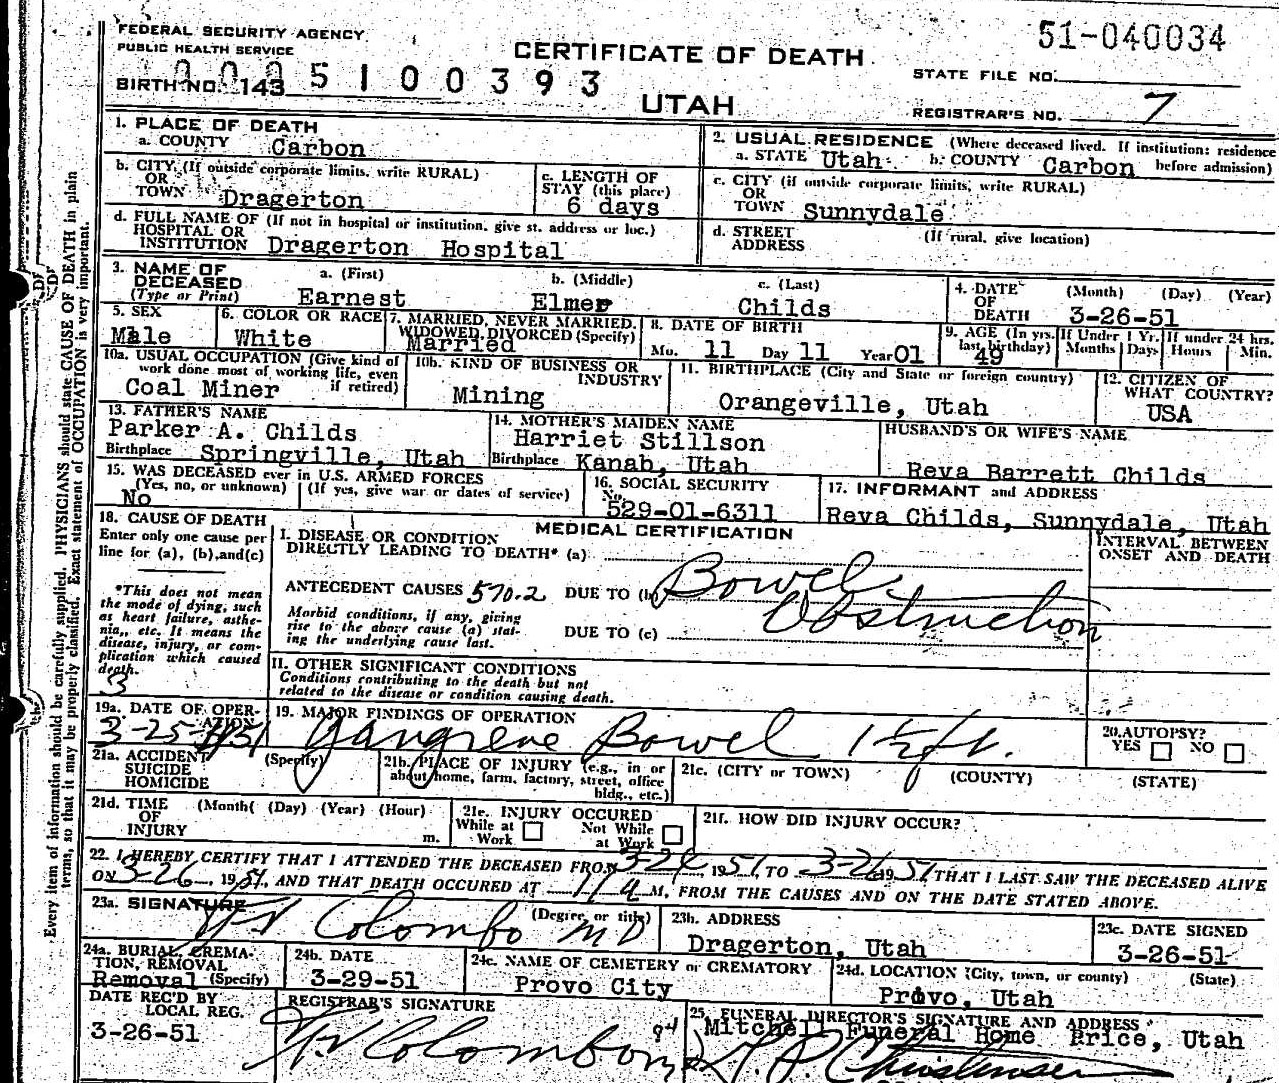 FEDERAL SECURITY AGENCY
PUBLIC HEALTH SERVICE
CERTIFICATE OF DEATH
51-040034
STATE FILE NO.
BIRTH NO. 143 0005100393
UTAH
REGISTRAR'S NO. 7
1. PLACE OF DEATH
a. COUNTY Carbon
2. USUAL RESIDENCE (Where deceased lived. If institution: residence before admission)
a. STATE Utah b. COUNTY Carbon
b. CITY (If outside corporate limits, write RURAL)
OR
TOWN Dragerton
c. LENGTH OF
STAY (this place)
6 days
c. CITY (if outside corporate limits, write RURAL)
OR
TOWN Sunnydale
d. FULL NAME OF (If not in hospital or institution, give st. address or loc.)
HOSPITAL OR
INSTITUTION Dragerton Hospital
d. STREET (If rural, give location)
ADDRESS
3. NAME OF
DECEASED
(Type or Print)
a. (First) b. (Middle) c. (Last)
Earnest Elmer Childs
4. DATE (Month) (Day) (Year)
OF
DEATH 3-26-51
5. SEX
Male
6. COLOR OR RACE
White
7. MARRIED, NEVER MARRIED,
WIDOWED, DIVORCED (Specify)
Married
8. DATE OF BIRTH
Mo. 11 Day 11 Year 01
9. AGE (In yrs.
last birthday)
49
If Under 1 Yr.
Months Days
If under 24 hrs.
Hours Min.
10a. USUAL OCCUPATION (Give kind of
work done most of working life, even
if retired)
Coal Miner
10b. KIND OF BUSINESS OR
INDUSTRY
Mining
11. BIRTHPLACE (City and State or foreign country)
Orangeville, Utah
12. CITIZEN OF
WHAT COUNTRY?
USA
13. FATHER'S NAME
Parker A. Childs
Birthplace Springville, Utah
14. MOTHER'S MAIDEN NAME
Harriet Stillson
Birthplace Kanab, Utah
HUSBAND'S OR WIFE'S NAME
Reva Barrett Childs
15. WAS DECEASED ever in U.S. ARMED FORCES
(Yes, no, or unknown) (If yes, give war or dates of service)
No
16. SOCIAL SECURITY
No.
529-01-6311
17. INFORMANT and ADDRESS
Reva Childs, Sunnydale, Utah
18. CAUSE OF DEATH
Enter only one cause per
line for (a), (b), and (c)
*This does not mean
the mode of dying, such
as heart failure, asthe-
nia, etc. It means the
disease, injury, or com-
plication which caused
death.
3
MEDICAL CERTIFICATION
I. DISEASE OR CONDITION
DIRECTLY LEADING TO DEATH* (a)
INTERVAL BETWEEN
ONSET AND DEATH
ANTECEDENT CAUSES 570.2 DUE TO (b) Bowel
Obstruction
Morbid conditions, if any, giving
rise to the above cause (a) stat-
ing the underlying cause last.
DUE TO (c)
II. OTHER SIGNIFICANT CONDITIONS
Conditions contributing to the death but not
related to the disease or condition causing death.
19a. DATE OF OPER-
ATION
3-25-1951
19. MAJOR FINDINGS OF OPERATION
Gangrene Bowel 1½ ft.
20. AUTOPSY?
YES NO
21a. ACCIDENT (Specify)
SUICIDE
HOMICIDE
21b. PLACE OF INJURY (e.g., in or
about home, farm, factory, street, office
bldg., etc.)
21c. (CITY or TOWN) (COUNTY) (STATE)
21d. TIME (Month( (Day) (Year) (Hour)
OF
INJURY m.
21e. INJURY OCCURED
While at Work Not While at Work
21f. HOW DID INJURY OCCUR?
22. I HEREBY CERTIFY THAT I ATTENDED THE DECEASED FROM 3-24 1951, TO 3-26 1951 THAT I LAST SAW THE DECEASED ALIVE
ON 3-26, 1951, AND THAT DEATH OCCURED AT M, FROM THE CAUSES AND ON THE DATE STATED ABOVE.
23a. SIGNATURE (Degree, or title)
Colombo MD
23b. ADDRESS
Dragerton, Utah
23c. DATE SIGNED
3-26-51
24a. BURIAL, CREMA-
TION, REMOVAL
Removal (Specify)
24b. DATE
3-29-51
24c. NAME OF CEMETERY or CREMATORY
Provo City
24d. LOCATION (City, town, or county) (State)
Provo, Utah
DATE REC'D BY
LOCAL REG.
3-26-51
REGISTRAR'S SIGNATURE
Colombo
25. FUNERAL DIRECTOR'S SIGNATURE AND ADDRESS
Mitchell Funeral Home Price, Utah
Christensen
Every item of information should be carefully supplied. PHYSICIANS should state CAUSE OF DEATH in plain
terms, so that it may be properly classified. Exact statement of OCCUPATION is very important.